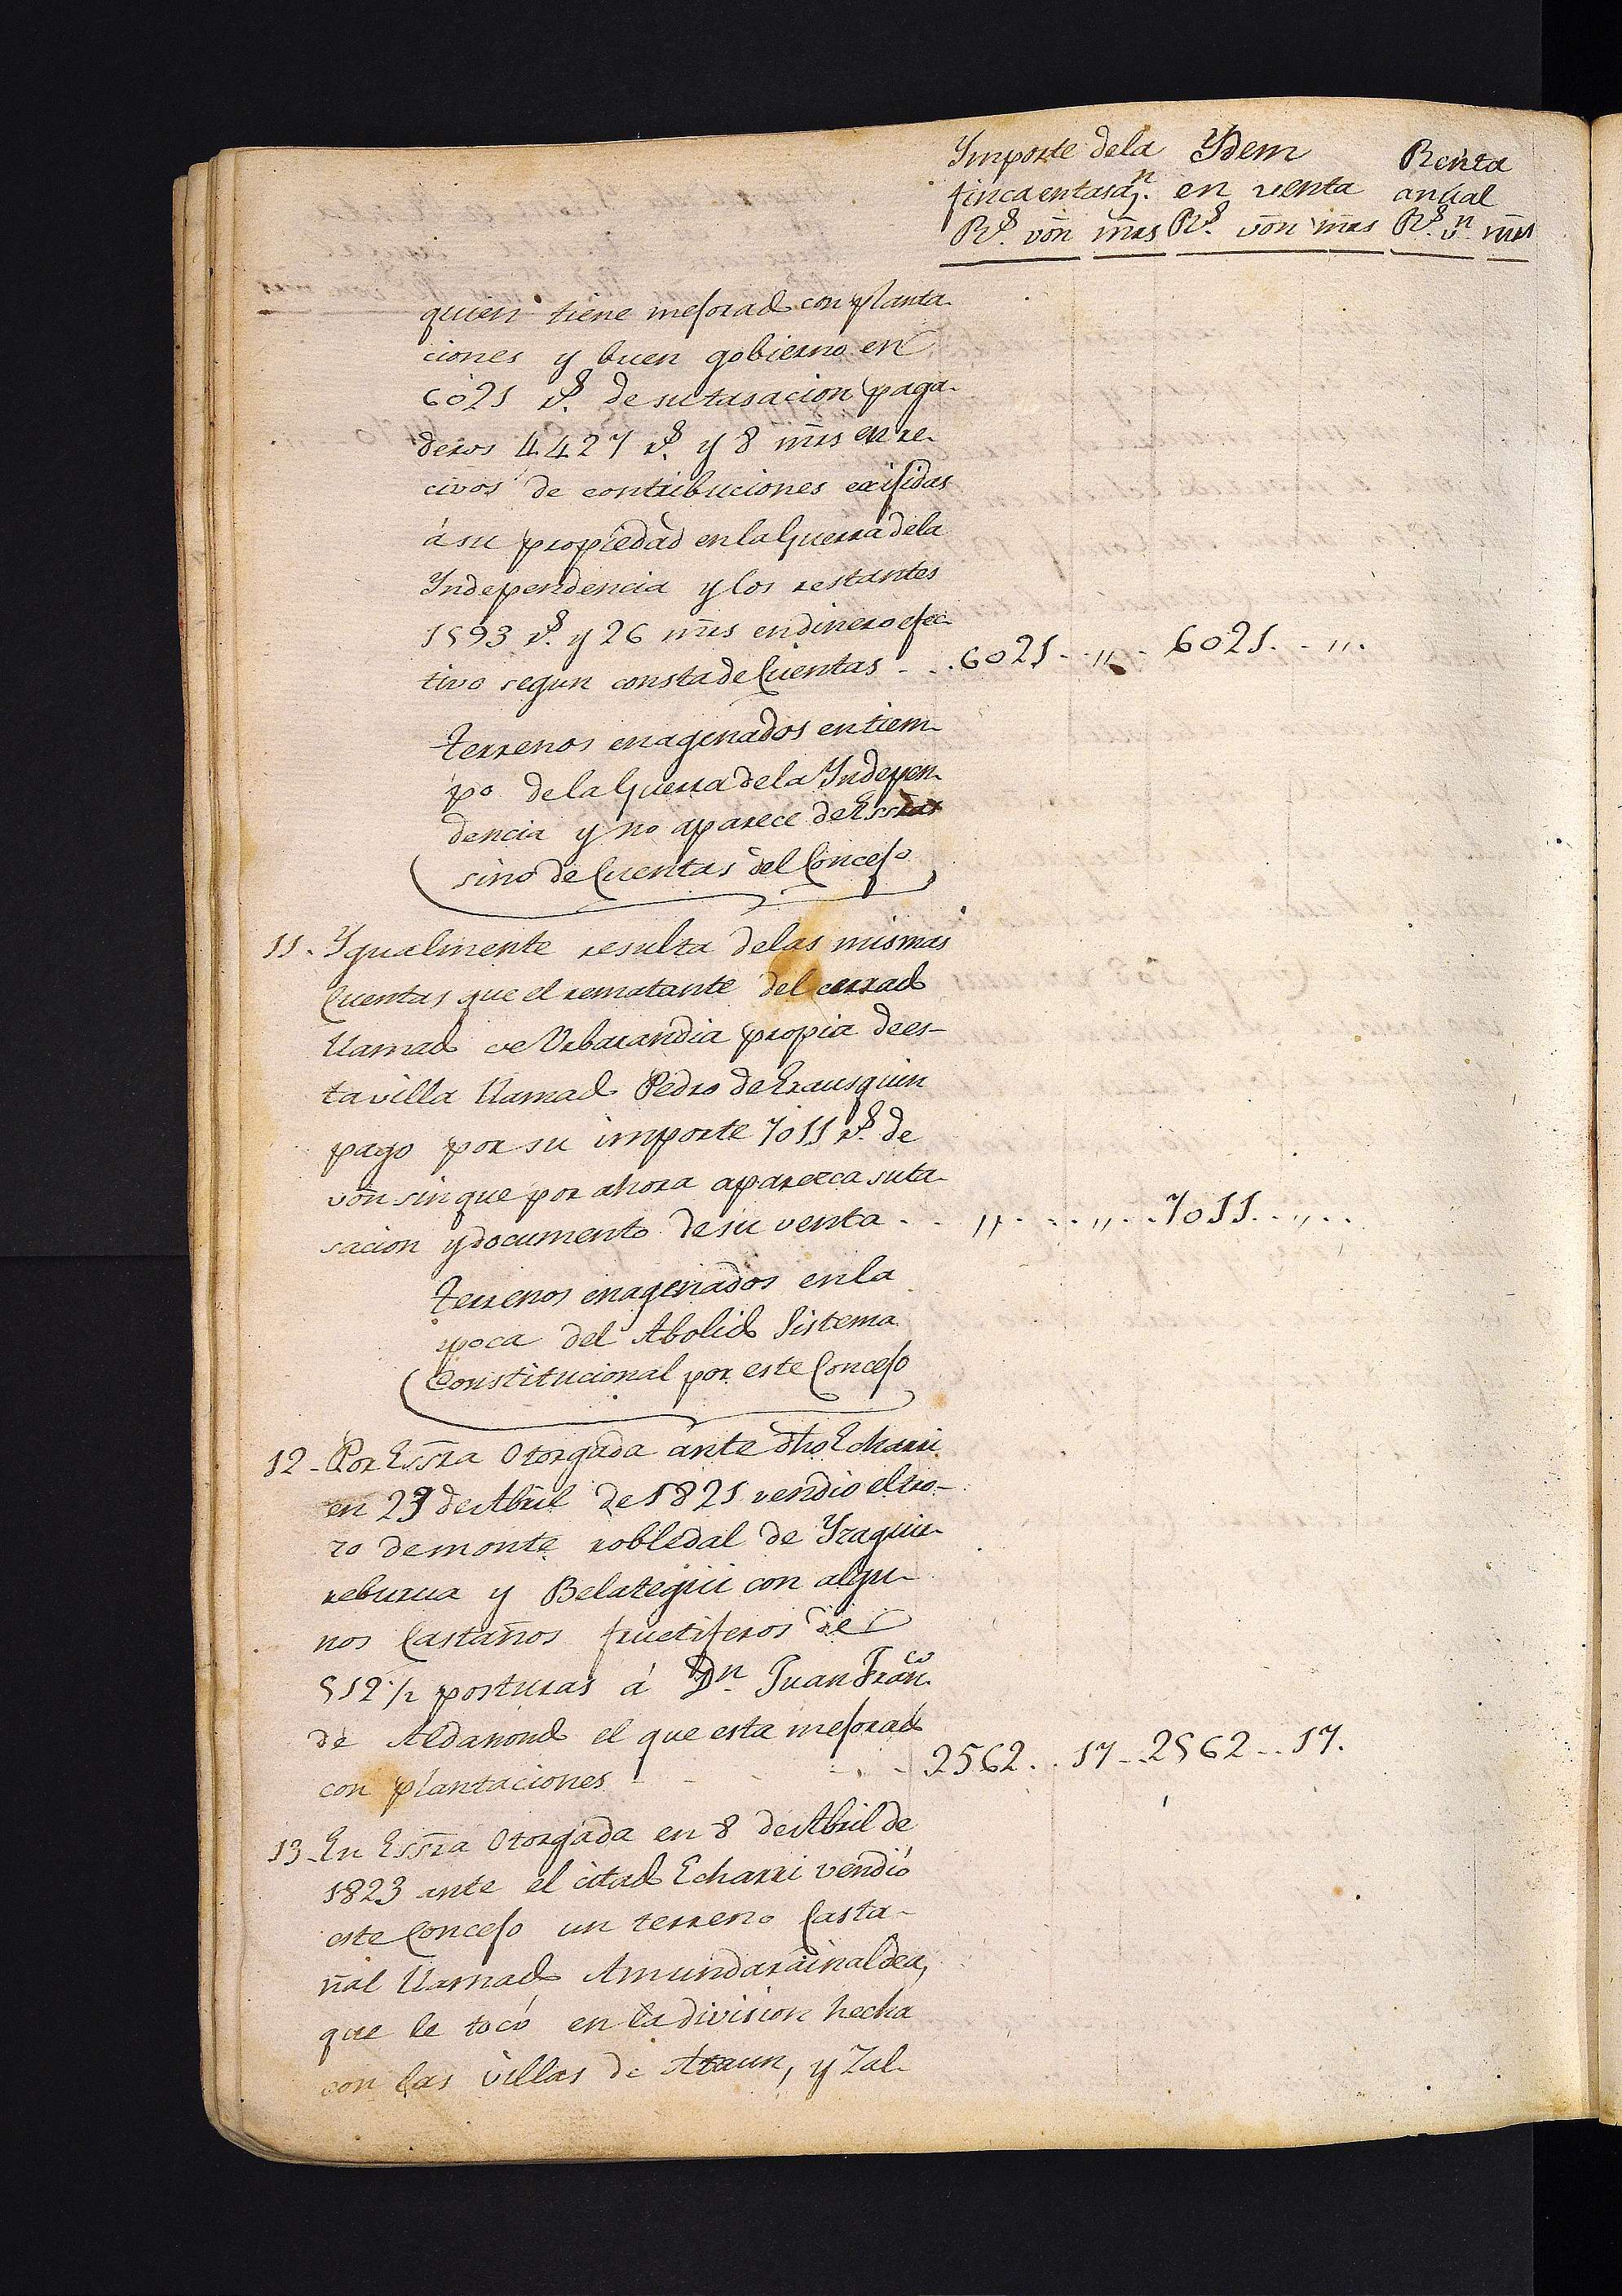 Ymporte dela Ydem Renta
finca entasaⁿ. en venta anual
Rˢ. von mrs Rˢ. von mrs Rˢ. vⁿ mrs
quien tiene mejorado con planta-
ciones y buen gobierno en
6021 rˢ. de su tasacion paga-
deros 4427 rˢ. y 8 mrs en re-
civos de contribuciones exijidas
á su propiedad en la Guerra dela
Yndependencia y los restantes
1593 rˢ. y 26 mrs en dinero efec-
tivo segun consta de Cuentas - . . 6021 . . ,, . 6021 . . ,, .
Terrenos enagenados en tiem-
po de la Guerra dela Yndepen-
dencia y no aparece de Essras
sino de Cuentas del Concejo
11. Ygualmente resulta delas mismas
Cuentas que el rematante del cerrado
llamado de Urbarandia propia de es-
ta villa llamado Pedro de Erausquin
pago por su importe 7011 rˢ. de
von sin que por ahora aparezca su ta-
sacion y documento de su venta . . ,, . . . ,, . . 7011 . . ,, . .
Terrenos enagenados en la
epoca del Abolido Sistema
Constitucional por este Concejo
12 - Por Essra Otorgada ante dho Echarri
en 29 de Abril de 1821 vendio el tro-
zo de monte robledal de Yzaguir-
reburua y Belategui con algu-
nos Castaños fructiferos de
512 ½ posturas á Dⁿ. Juan Franᶜᵒ.
de Aldanondo el que esta mejorado
con plantaciones - - - - . - 2562 . . 17 - . 2562 - . . 17 .
13 - En Essra Otorgada en 8 de Abril de
1823 ante el citado Echarri vendió
este Concejo un terreno Casta-
ñal llamado Amundarainaldea,
que le tocó en la division hecha
con las villas de Ataun, y Zal-